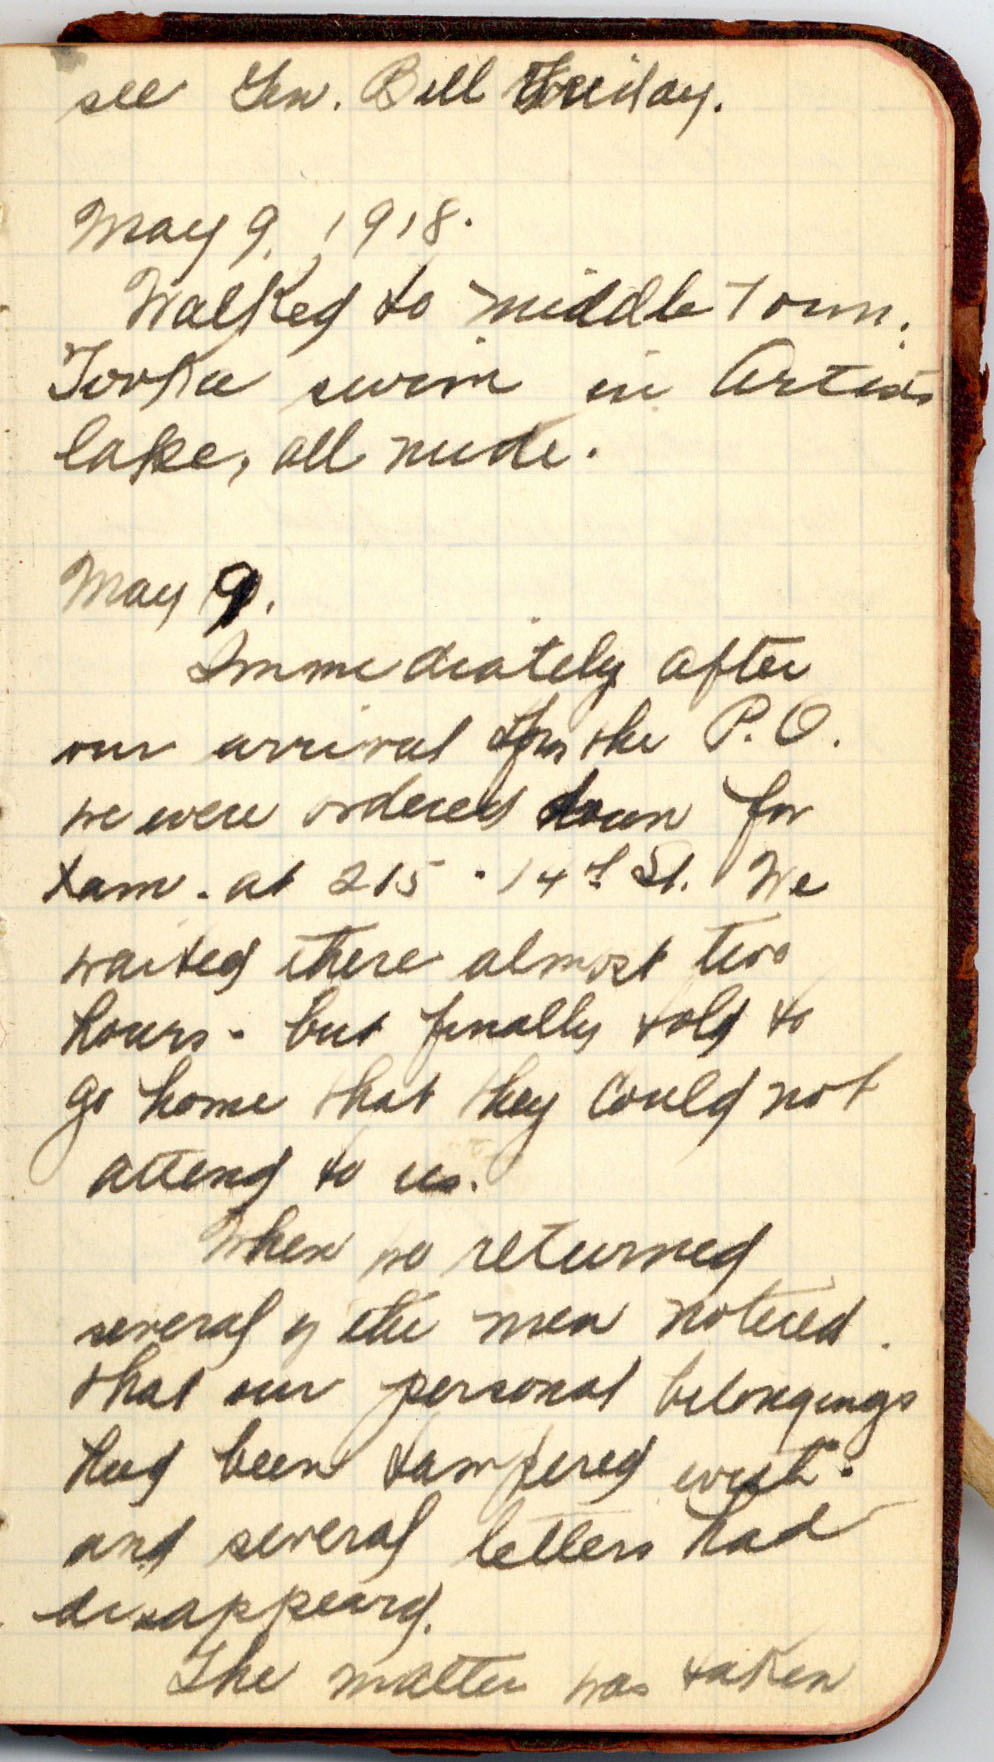 see Gen. Bell Friday.
May 9, 1918.
Walked to middle Town.
Took a swim in Artists
lake, all nude.
May 9.
Immediately after
our arrival from the P.O.
we were ordered down for
xam. at 215 · 14th St. We
waited there almost two
hours - but finally told to
go home that they could not
attend to us.
When we returned
several of the men noticed
that our personal belongings
had been tampered with.
and several letters had
disappeard.
The matter was taken